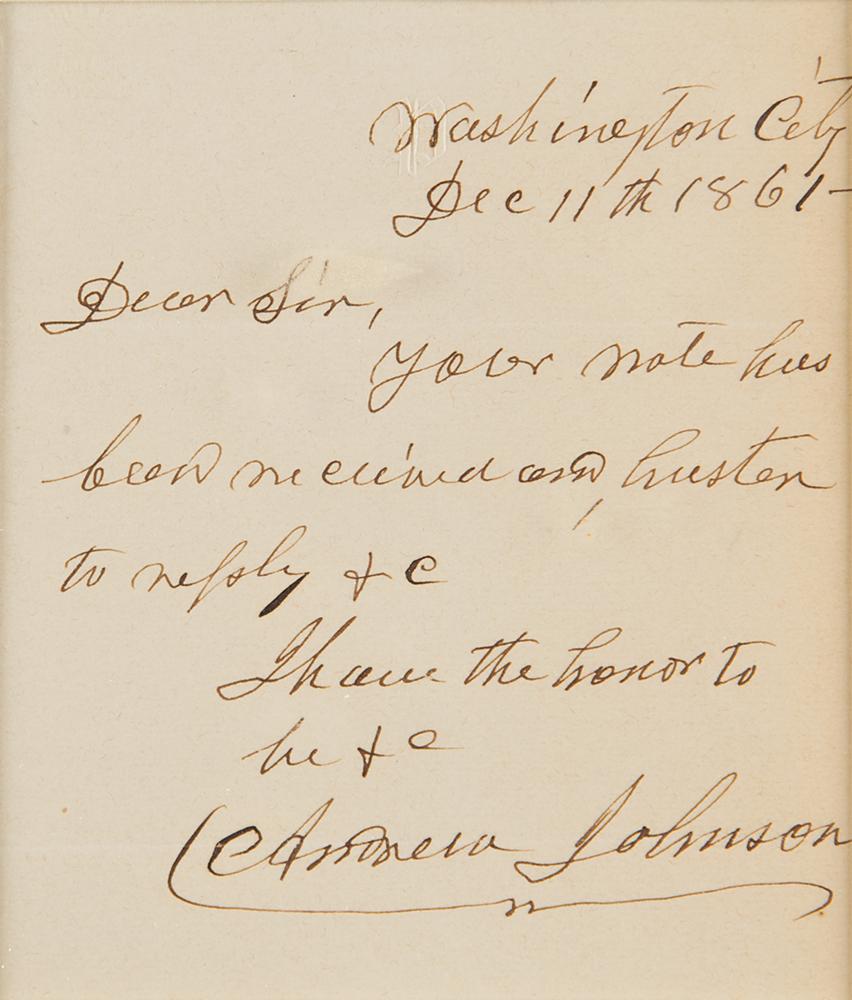 Washington City
Dec 11th 1861-
Dear Sir,
Your note has
been received and, hasten
to reply & c
I have the honor to
be & c
Andrew Johnson